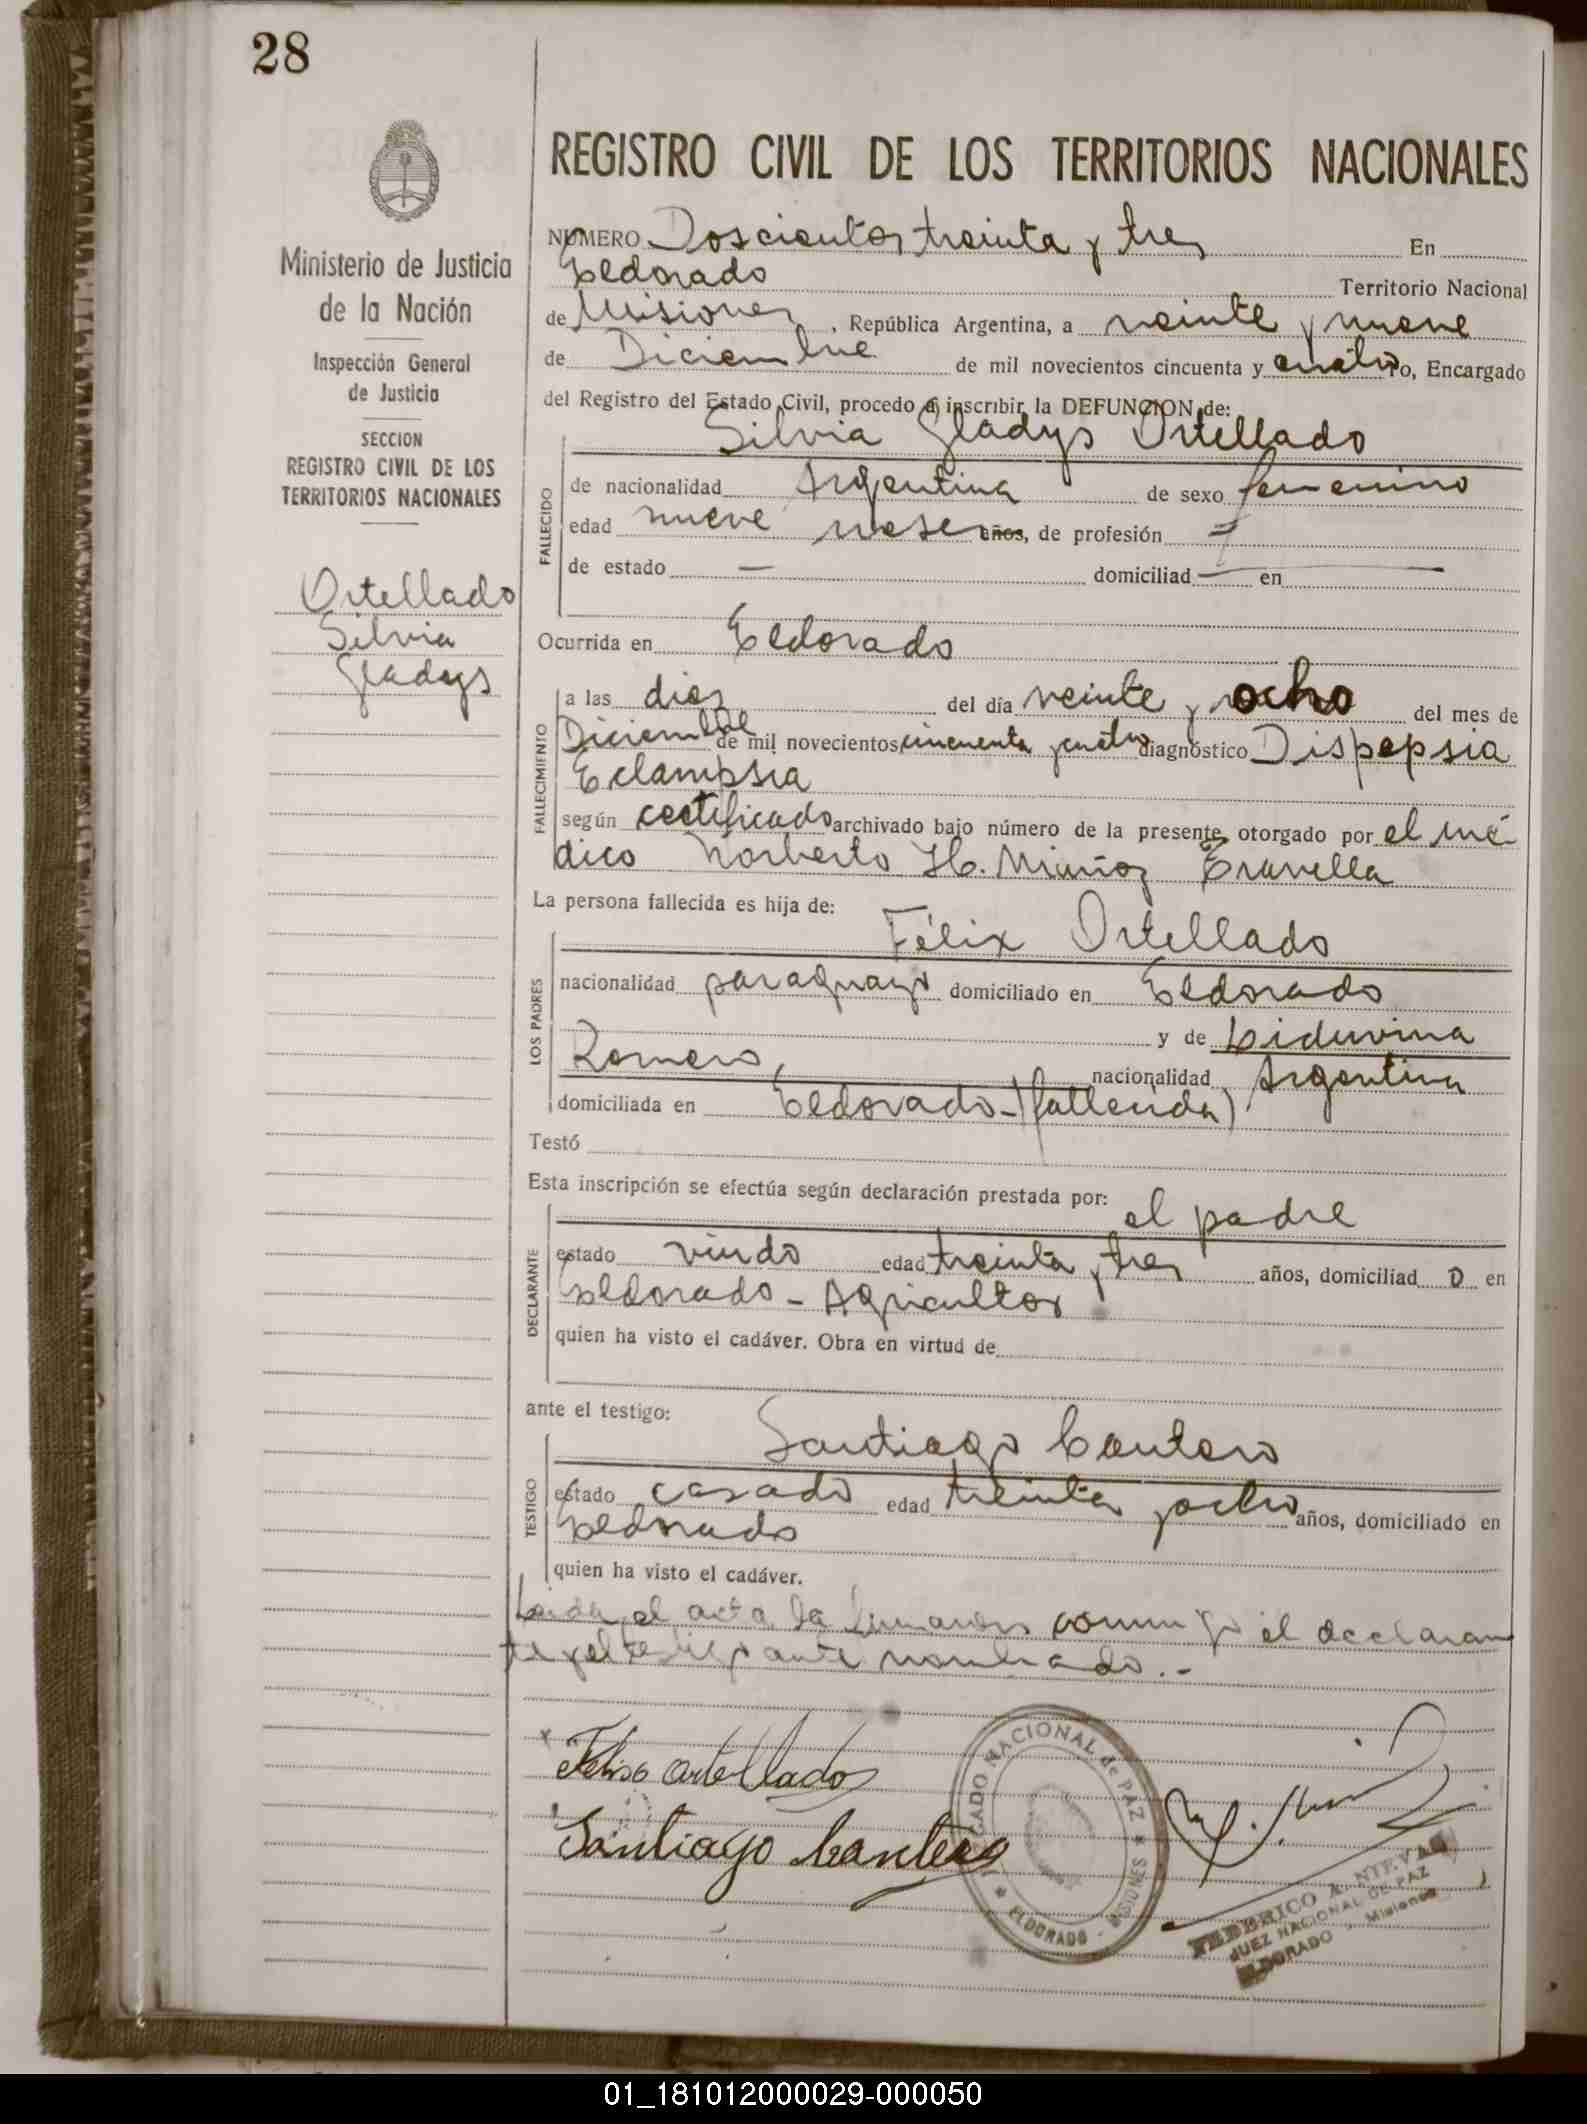 28
REGISTRO CIVIL DE LOS TERRITORIOS NACIONALES
Ministerio de Justicia
de la Nación
Inspección General
de Justicia
SECCION
REGISTRO CIVIL DE LOS
TERRITORIOS NACIONALES
Ortellado
Silvia
Gladys
NUMERO Doscientos treinta y tres En
Eldorado Territorio Nacional
de Misiones, República Argentina, a veinte y nueve
de Diciembre de mil novecientos cincuenta y cuatro, Encargado
del Registro del Estado Civil, procedo a inscribir la DEFUNCION de:
Silvia Gladys Ortellado
FALLECIDO
de nacionalidad Argentina de sexo femenino
edad nueve meses años, de profesión —
de estado — domiciliad — en —
Ocurrida en Eldorado
FALLECIMIENTO
a las diez del día veinte y ocho del mes de
Diciembre de mil novecientos cincuenta y cuatro diagnóstico Dispepsia
Eclampsia
según certificado archivado bajo número de la presente, otorgado por el mé-
dico Norberto H. Muñoz
La persona fallecida es hija de:
Félix Ortellado
LOS PADRES
nacionalidad paraguayo domiciliado en Eldorado
y de Liduvina
Romero, nacionalidad Argentina
domiciliada en Eldorado - (fallecida)
Testó
Esta inscripción se efectúa según declaración prestada por: el padre
DECLARANTE
estado viudo edad treinta y tres años, domiciliad o en
Eldorado - Agricultor
quien ha visto el cadáver. Obra en virtud de
ante el testigo:
Santiago Cantero
TESTIGO
estado casado edad treinta y ocho años, domiciliado en
Eldorado
quien ha visto el cadáver.
Leída el acta la firmaron conmigo el declaran
te y el testigo ante nombrado.-
x Ortellado
Santiago Cantero
JUZGADO NACIONAL de PAZ * MISIONES - ELDORADO *
FEDERICO A. NIEVAS
JUEZ NACIONAL DE PAZ
ELDORADO - Misiones
01_181012000029-000050